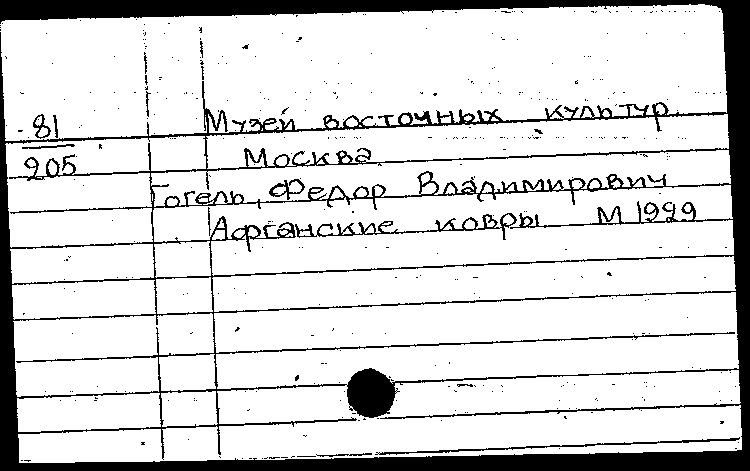 81 Музей восточных культур.
205 Москва
Гогель, Федор Владимирович
Афганские ковры М 1929